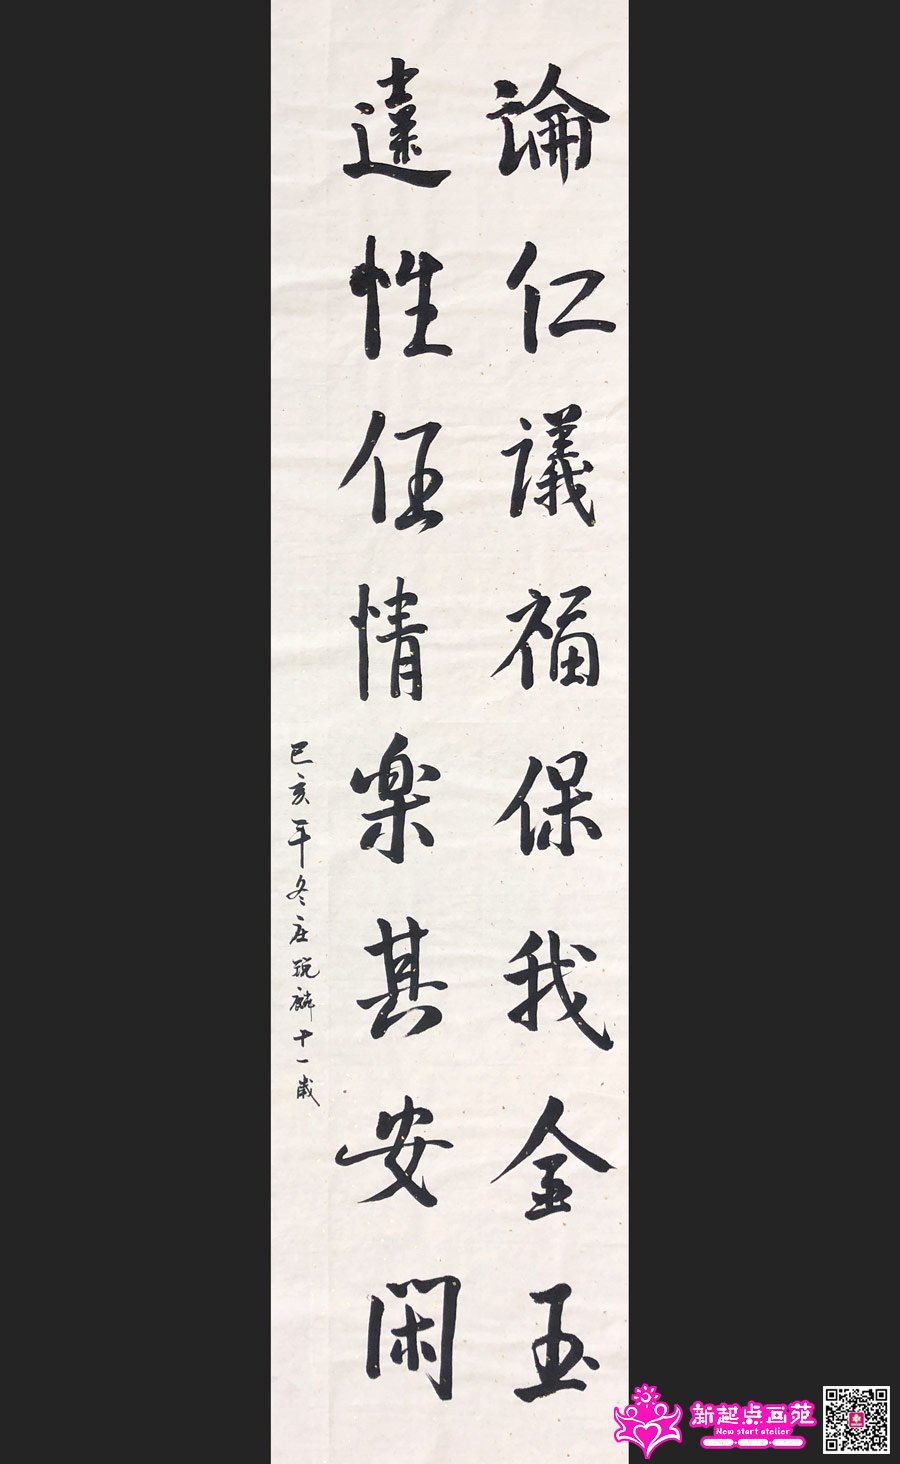 論仁議福保我金玉
達性任情楽其安閑
己亥年冬庄琬麟十一歲
新起点画苑
New start atelier